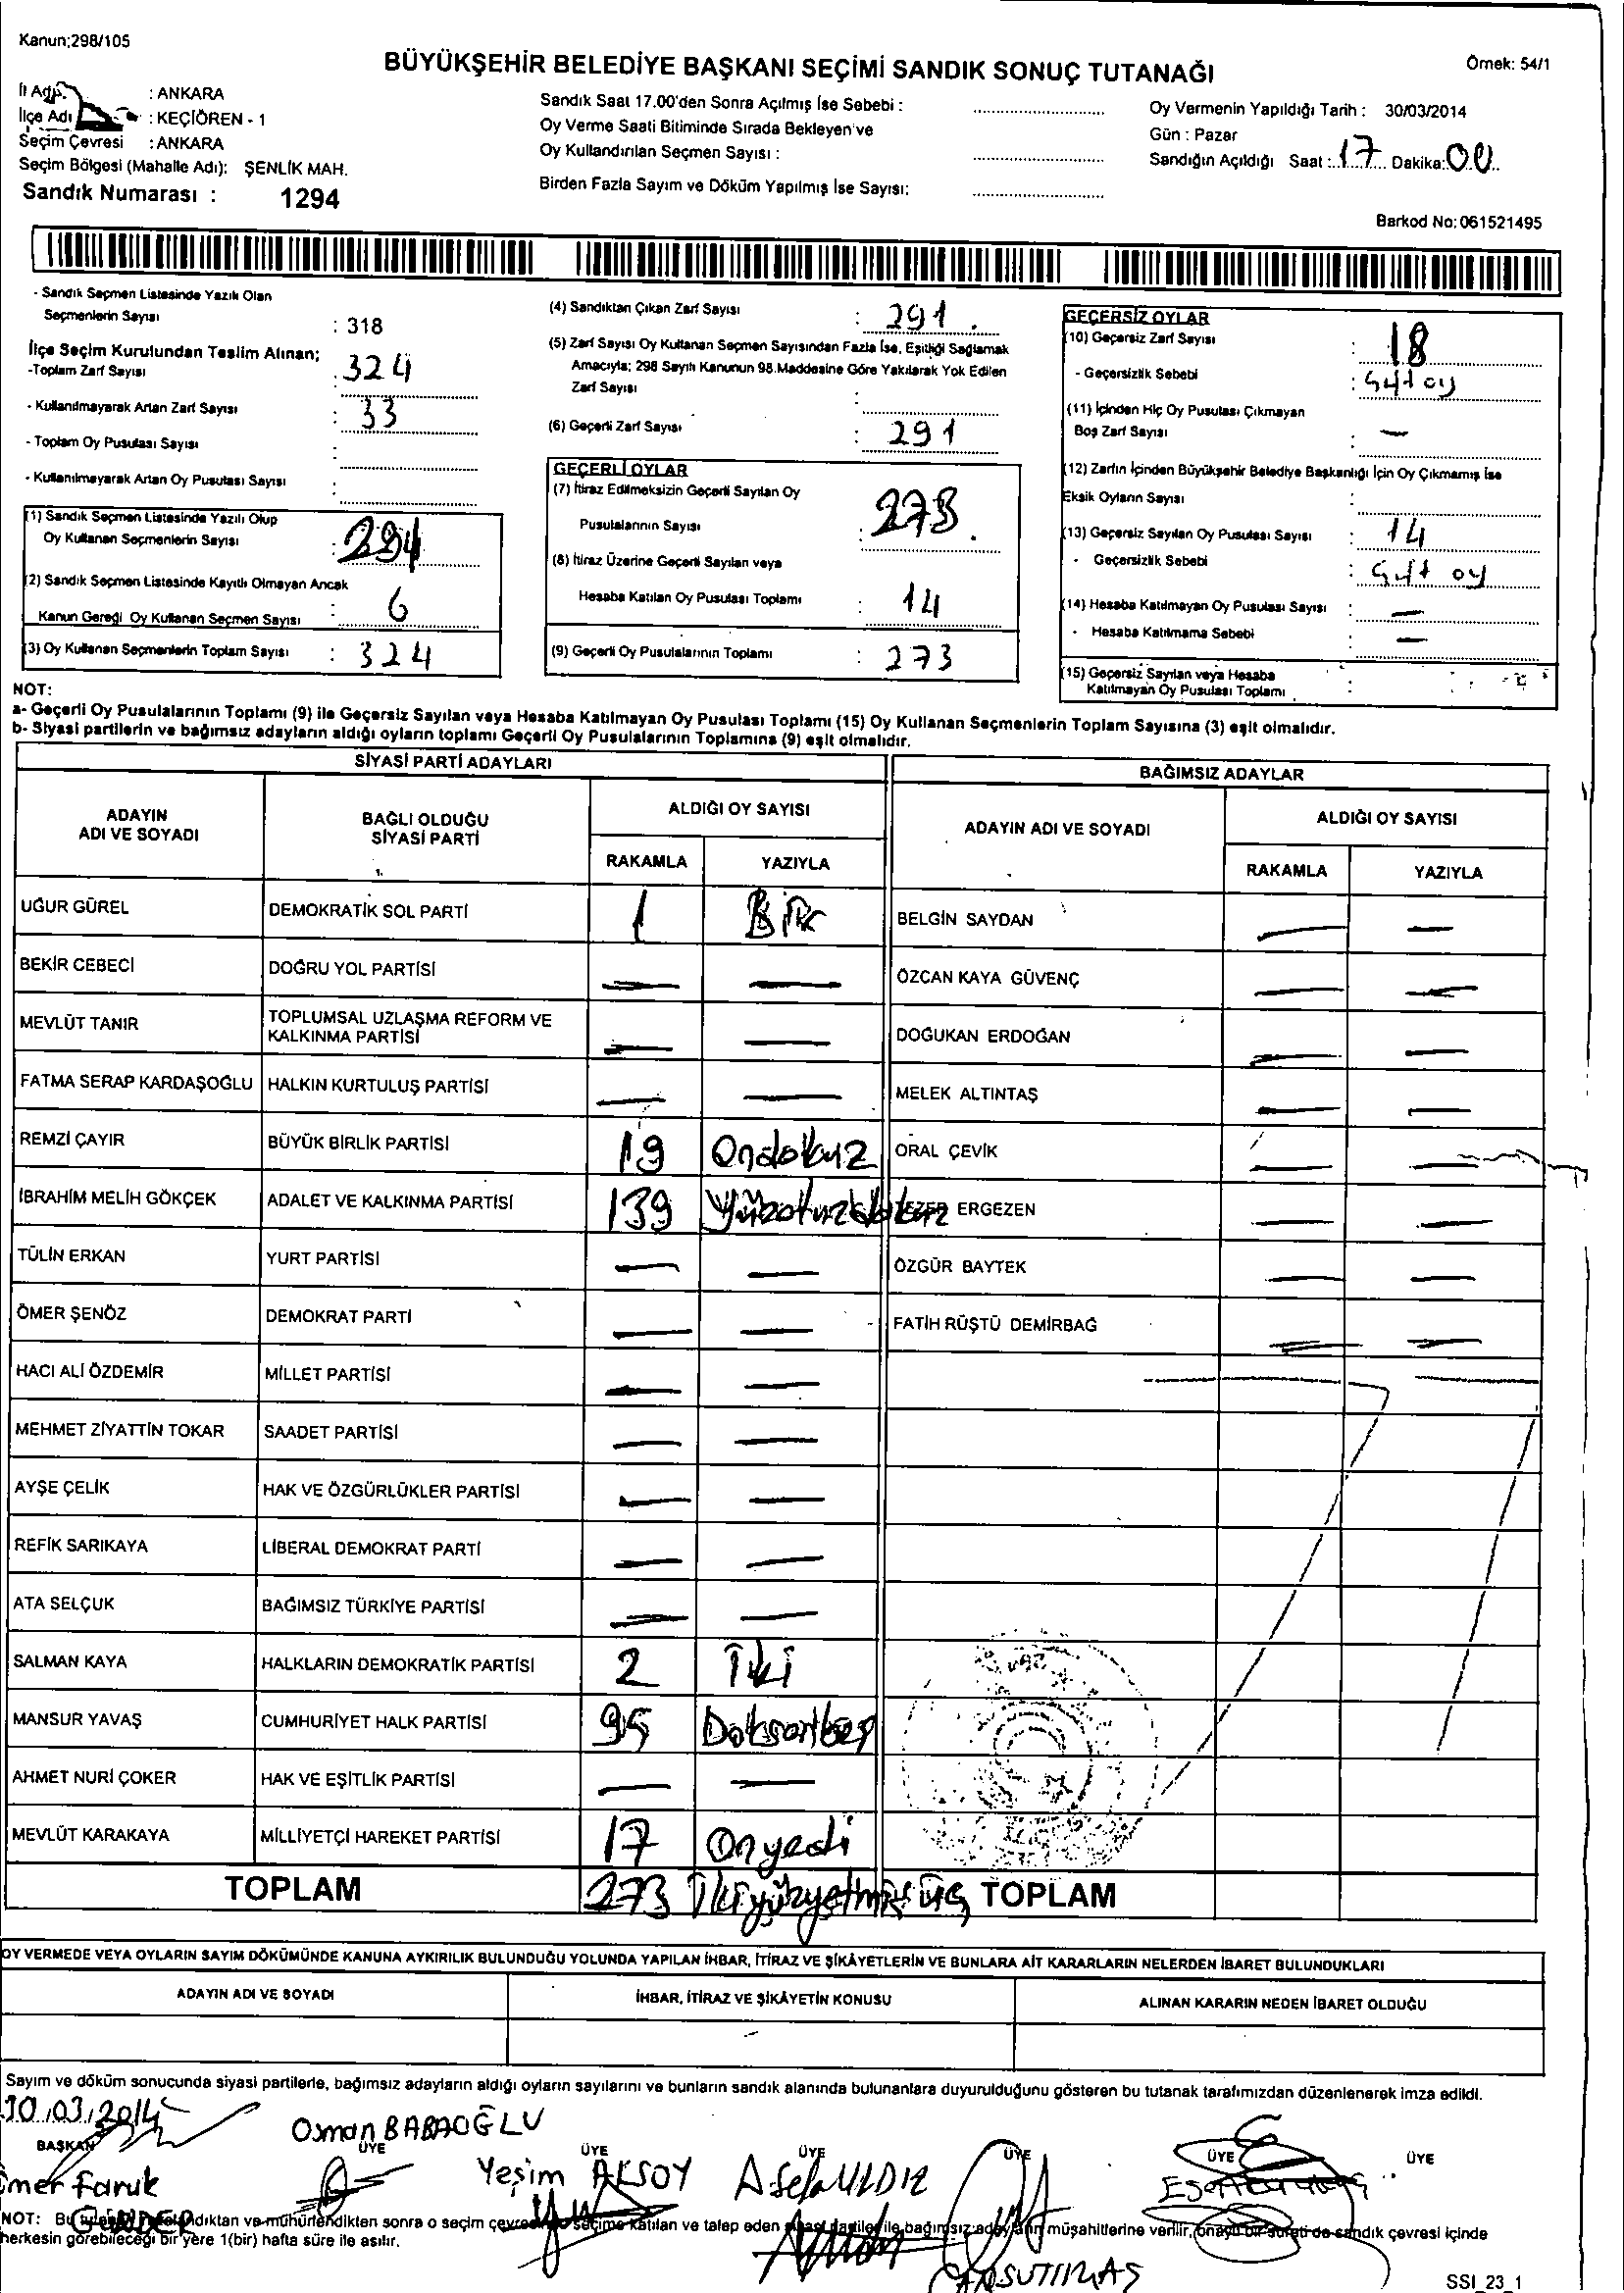 Kanun:298/105
BÜYÜKŞEHİR BELEDİYE BAŞKANI SEÇİMİ SANDIK SONUÇ TUTANAĞI
Örnek: 54/1
İl Adı : ANKARA
İlçe Adı : KEÇİÖREN - 1
Seçim Çevresi : ANKARA
Seçim Bölgesi (Mahalle Adı): ŞENLİK MAH.
Sandık Numarası : 1294
Sandık Saat 17.00'den Sonra Açılmış İse Sebebi :
Oy Verme Saati Bitiminde Sırada Bekleyen ve
Oy Kullandırılan Seçmen Sayısı :
Birden Fazla Sayım ve Döküm Yapılmış İse Sayısı:
Oy Vermenin Yapıldığı Tarih : 30/03/2014
Gün : Pazar
Sandığın Açıldığı Saat : 17 Dakika: 00
Barkod No: 061521495
- Sandık Seçmen Listesinde Yazılı Olan
Seçmenlerin Sayısı : 318
İlçe Seçim Kurulundan Teslim Alınan;
-Toplam Zarf Sayısı : 324
- Kullanılmayarak Artan Zarf Sayısı : 33
- Toplam Oy Pusulası Sayısı :
- Kullanılmayarak Artan Oy Pusulası Sayısı :
(1) Sandık Seçmen Listesinde Yazılı Olup
Oy Kullanan Seçmenlerin Sayısı :
(2) Sandık Seçmen Listesinde Kayıtlı Olmayan Ancak
Kanun Gereği Oy Kullanan Seçmen Sayısı : 6
(3) Oy Kullanan Seçmenlerin Toplam Sayısı : 324
(4) Sandıktan Çıkan Zarf Sayısı : 291
(5) Zarf Sayısı Oy Kullanan Seçmen Sayısından Fazla İse, Eşitliği Sağlamak
Amacıyla; 298 Sayılı Kanunun 98.Maddesine Göre Yakılarak Yok Edilen
Zarf Sayısı :
(6) Geçerli Zarf Sayısı : 291
GEÇERLİ OYLAR
(7) İtiraz Edilmeksizin Geçerli Sayılan Oy
Pusulalarının Sayısı : 273
(8) İtiraz Üzerine Geçerli Sayılan veya
Hesaba Katılan Oy Pusulası Toplamı : 14
(9) Geçerli Oy Pusulalarının Toplamı : 273
GEÇERSİZ OYLAR
(10) Geçersiz Zarf Sayısı : 18
- Geçersizlik Sebebi : Çift oy
(11) İçinden Hiç Oy Pusulası Çıkmayan
Boş Zarf Sayısı : —
(12) Zarfın İçinden Büyükşehir Belediye Başkanlığı İçin Oy Çıkmamış İse
Eksik Oyların Sayısı :
(13) Geçersiz Sayılan Oy Pusulası Sayısı : 14
- Geçersizlik Sebebi : Çift oy
(14) Hesaba Katılmayan Oy Pusulası Sayısı : —
- Hesaba Katılmama Sebebi : —
(15) Geçersiz Sayılan veya Hesaba
Katılmayan Oy Pusulası Toplamı :
NOT:
a- Geçerli Oy Pusulalarının Toplamı (9) ile Geçersiz Sayılan veya Hesaba Katılmayan Oy Pusulası Toplamı (15) Oy Kullanan Seçmenlerin Toplam Sayısına (3) eşit olmalıdır.
b- Siyasi partilerin ve bağımsız adayların aldığı oyların toplamı Geçerli Oy Pusulalarının Toplamına (9) eşit olmalıdır.
SİYASİ PARTİ ADAYLARI
ADAYIN ADI VE SOYADI BAĞLI OLDUĞU SİYASİ PARTİ ALDIĞI OY SAYISI
RAKAMLA YAZIYLA
UĞUR GÜREL DEMOKRATİK SOL PARTİ 1 Bir
BEKİR CEBECİ DOĞRU YOL PARTİSİ — —
MEVLÜT TANIR TOPLUMSAL UZLAŞMA REFORM VE KALKINMA PARTİSİ — —
FATMA SERAP KARDAŞOĞLU HALKIN KURTULUŞ PARTİSİ — —
REMZİ ÇAYIR BÜYÜK BİRLİK PARTİSİ 19 Ondokuz
İBRAHİM MELİH GÖKÇEK ADALET VE KALKINMA PARTİSİ 139 Yüzotuzdokuz
TÜLİN ERKAN YURT PARTİSİ — —
ÖMER ŞENÖZ DEMOKRAT PARTİ — —
HACI ALİ ÖZDEMİR MİLLET PARTİSİ — —
MEHMET ZİYATTİN TOKAR SAADET PARTİSİ — —
AYŞE ÇELİK HAK VE ÖZGÜRLÜKLER PARTİSİ — —
REFİK SARIKAYA LİBERAL DEMOKRAT PARTİ — —
ATA SELÇUK BAĞIMSIZ TÜRKİYE PARTİSİ — —
SALMAN KAYA HALKLARIN DEMOKRATİK PARTİSİ 2 İki
MANSUR YAVAŞ CUMHURİYET HALK PARTİSİ 95 Doksanbeş
AHMET NURİ ÇOKER HAK VE EŞİTLİK PARTİSİ — —
MEVLÜT KARAKAYA MİLLİYETÇİ HAREKET PARTİSİ 17 Onyedi
TOPLAM 273 İkiyüzyetmişüç
BAĞIMSIZ ADAYLAR
ADAYIN ADI VE SOYADI ALDIĞI OY SAYISI
RAKAMLA YAZIYLA
BELGİN SAYDAN — —
ÖZCAN KAYA GÜVENÇ — —
DOĞUKAN ERDOĞAN — —
MELEK ALTINTAŞ — —
ORAL ÇEVİK — —
ERGEZEN — —
ÖZGÜR BAYTEK — —
FATİH RÜŞTÜ DEMİRBAĞ — —
TOPLAM
OY VERMEDE VEYA OYLARIN SAYIM DÖKÜMÜNDE KANUNA AYKIRILIK BULUNDUĞU YOLUNDA YAPILAN İHBAR, İTİRAZ VE ŞİKÂYETLERİN VE BUNLARA AİT KARARLARIN NELERDEN İBARET BULUNDUKLARI
ADAYIN ADI VE SOYADI İHBAR, İTİRAZ VE ŞİKÂYETİN KONUSU ALINAN KARARIN NEDEN İBARET OLDUĞU
Sayım ve döküm sonucunda siyasi partilerle, bağımsız adayların aldığı oyların sayılarını ve bunların sandık alanında bulunanlara duyurulduğunu gösteren bu tutanak tarafımızdan düzenlenerek imza edildi.
30.03.2014
BAŞKAN ÜYE ÜYE ÜYE ÜYE ÜYE ÜYE
Ömer Faruk
Osman BABAOĞLU
Yeşim AKSOY
NOT: Bu ve mühürlendikten sonra o seçim seçime katılan ve talep eden ile bağımsız müşahitlerine verilir, onaylı bir sureti de sandık çevresi içinde
herkesin görebileceği bir yere 1(bir) hafta süre ile asılır.
SSI_23_1